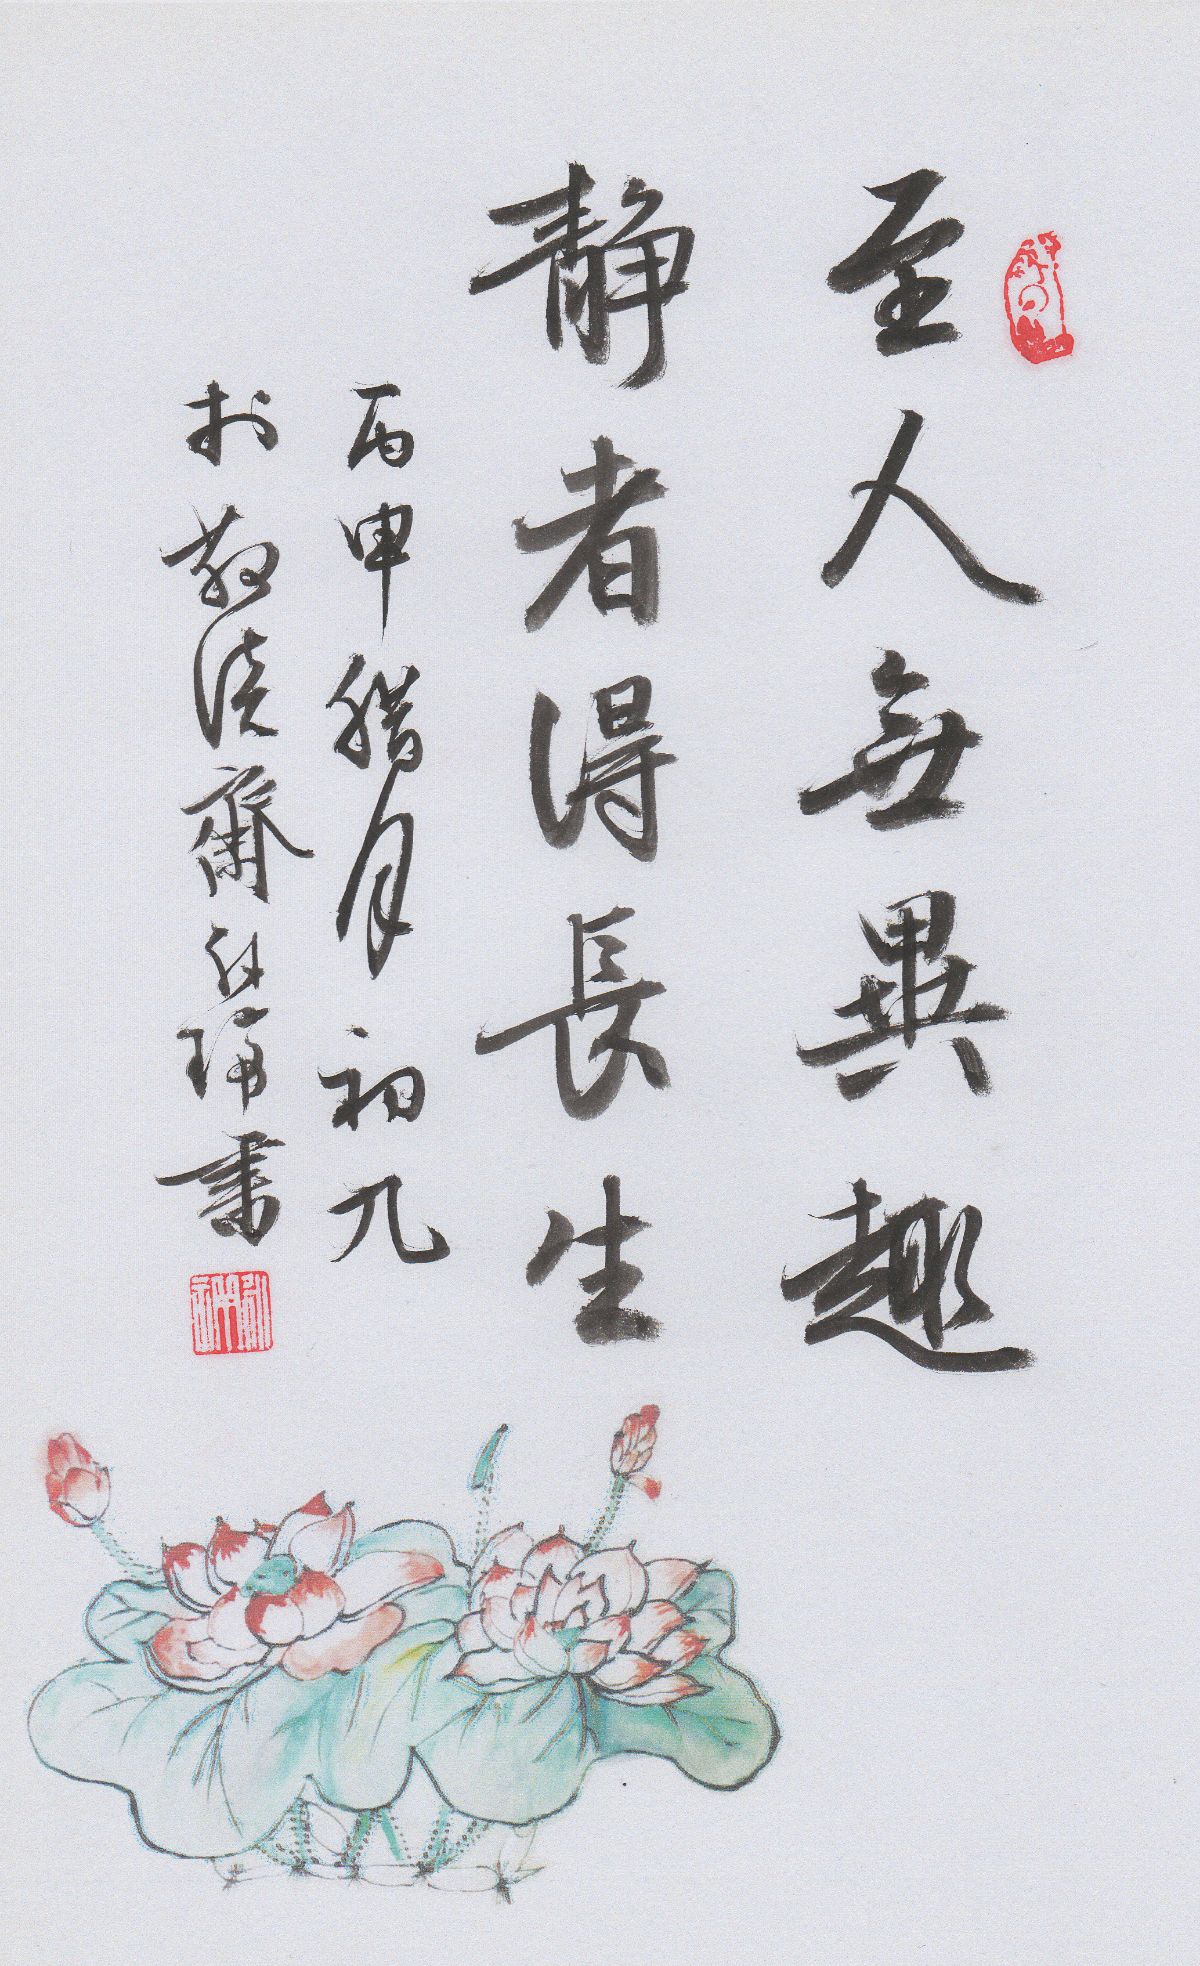 至人無異趣
静者得長生
丙申腊月初九
於敬德齋
書